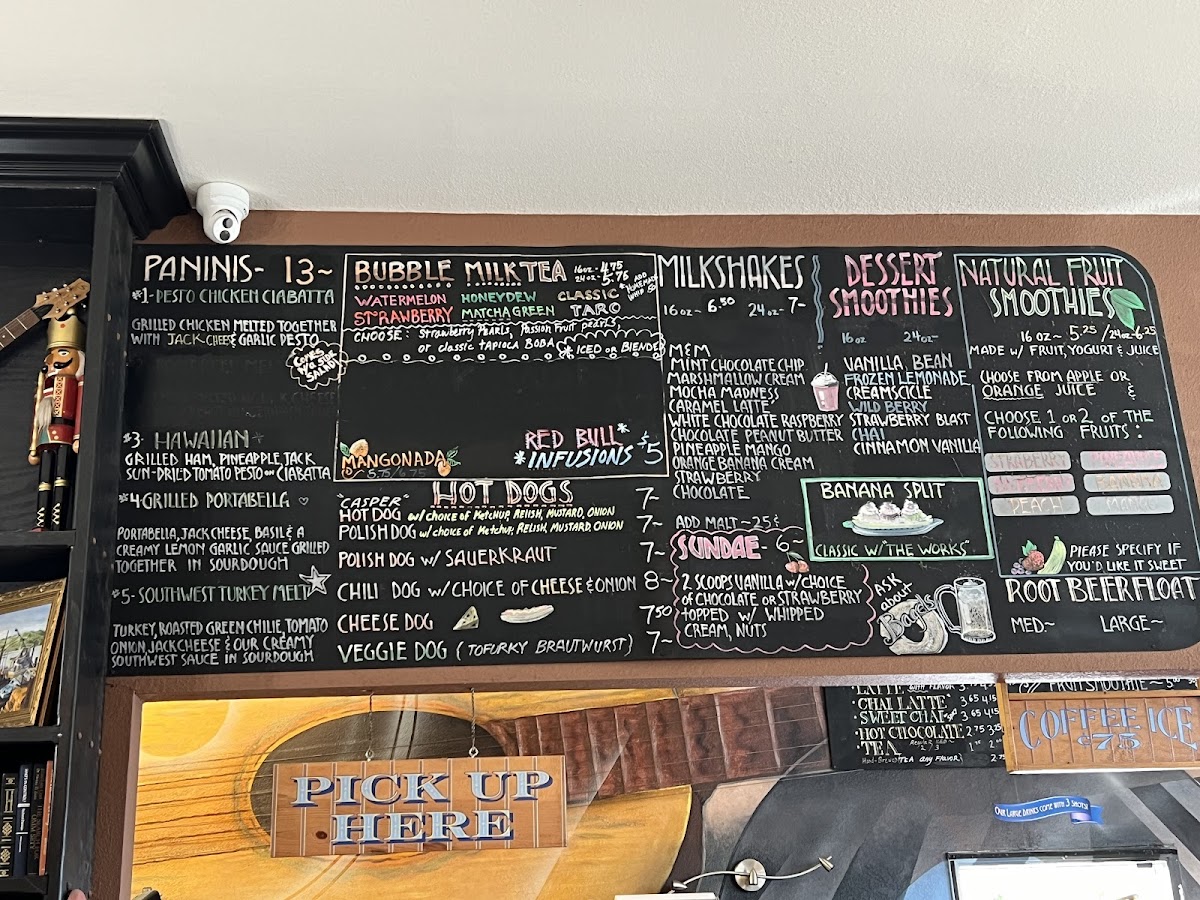 PANINIS- 13~
#1- PESTO CHICKEN CIABATTA
GRILLED CHICKEN MELTED TOGETHER
WITH JACK CHEESE & GARLIC PESTO
COMES W/ SIDE SALAD
#3- HAWAIIAN
GRILLED HAM, PINEAPPLE, JACK
SUN-DRIED TOMATO PESTO on CIABATTA
#4-GRILLED PORTABELLA
PORTABELLA, JACK CHEESE, BASIL & A
CREAMY LEMON GARLIC SAUCE GRILLED
TOGETHER IN SOURDOUGH
#5- SOUTHWEST TURKEY MELT
TURKEY, ROASTED GREEN CHILIE, TOMATO
ONION, JACK CHEESE & OUR CREAMY
SOUTHWEST SAUCE IN SOURDOUGH
BUBBLE MILK TEA 16oz- 4.75
24oz- 5.75
ADD HOMEMADE WHIP 50
WATERMELON HONEYDEW CLASSIC
STRAWBERRY MATCHA GREEN TARO
CHOOSE: Strawberry Pearls, Passion Fruit pearls
or classic tapioca BOBA *ICED OR BLENDED
MANGONADA
5.75/6.75
RED BULL*
*INFUSIONS $5
HOT DOGS
"CASPER"
HOT DOG w/ choice of Ketchup, RELISH, MUSTARD, ONION 7~
POLISH DOG w/ choice of Ketchup, RELISH, MUSTARD, ONION 7~
POLISH DOG w/ SAUERKRAUT 7~
CHILI DOG w/ CHOICE OF CHEESE & ONION 8~
CHEESE DOG 7.50
VEGGIE DOG (TOFURKY BRAUTWURST) 7~
MILKSHAKES
16oz~ 6.50 24oz~ 7-
M&M
MINT CHOCOLATE CHIP
MARSHMALLOW CREAM
MOCHA MADNESS
CARAMEL LATTE
WHITE CHOCOLATE RASPBERRY
CHOCOLATE PEANUT BUTTER
PINEAPPLE MANGO
ORANGE BANANA CREAM
STRAWBERRY
CHOCOLATE
ADD MALT~25¢
SUNDAE- 6~
2 SCOOPS VANILLA w/CHOICE
of CHOCOLATE or STRAWBERRY
TOPPED W/ WHIPPED
CREAM, NUTS
DESSERT
SMOOTHIES
16oz 24oz~
VANILLA BEAN
FROZEN LEMONADE
CREAMSCICLE
WILD BERRY
STRAWBERRY BLAST
CHAI
CINNAMON VANILLA
BANANA SPLIT
CLASSIC W/ "THE WORKS"
ASK
about
Bagels
NATURAL FRUIT
SMOOTHIES
16oz~ 5.25 /24oz~6.25
MADE W/ FRUIT, YOGURT & JUICE
CHOOSE FROM APPLE OR
ORANGE JUICE &
CHOOSE 1 OR 2 OF THE
FOLLOWING FRUITS:
PEACH MANGO
PLEASE SPECIFY IF
YOU'D LIKE IT SWEET
ROOT BEER FLOAT
MED.~ LARGE~
LATTE
CHAI LATTE 3.65 4.15
SWEET CHAI 3.65 4.15
HOT CHOCOLATE 2.75 3.25
TEA
TEA ANY FLAVOR 2.75
FRUIT SMOOTHIE~
COFFEE ICE
PICK UP
HERE
OUR LARGE DRINKS COME WITH 3 SHOTS!